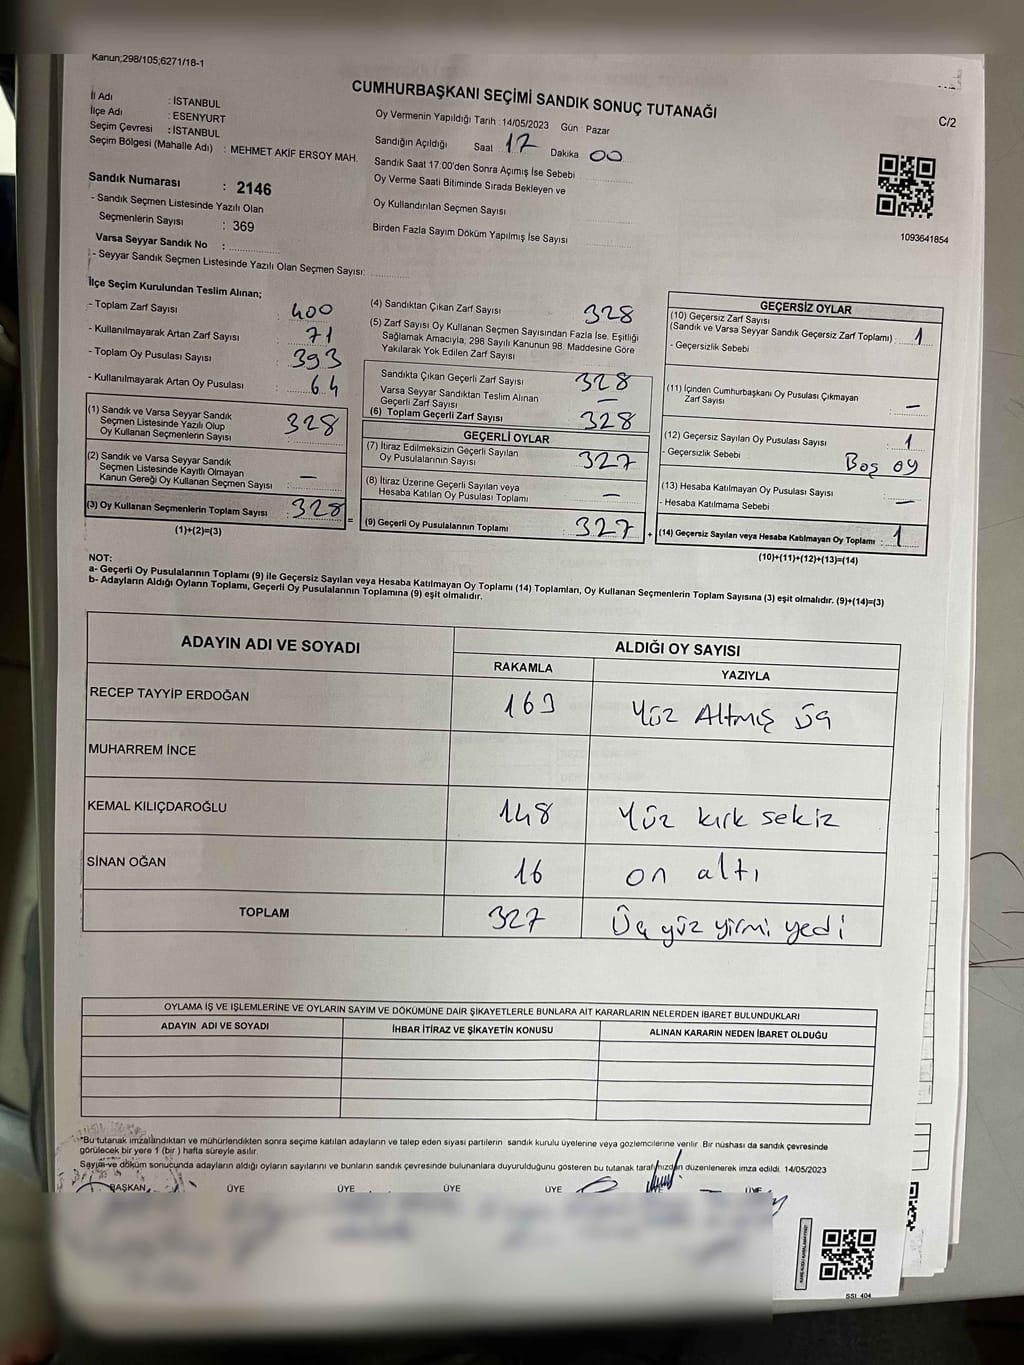 Kanun;298/105;6271/18-1
CUMHURBAŞKANI SEÇİMİ SANDIK SONUÇ TUTANAĞI
C/2
İl Adı : İSTANBUL
İlçe Adı : ESENYURT
Seçim Çevresi : İSTANBUL
Seçim Bölgesi (Mahalle Adı) : MEHMET AKİF ERSOY MAH.
Sandık Numarası : 2146
- Sandık Seçmen Listesinde Yazılı Olan
Seçmenlerin Sayısı : 369
Varsa Seyyar Sandık No :
- Seyyar Sandık Seçmen Listesinde Yazılı Olan Seçmen Sayısı:
Oy Vermenin Yapıldığı Tarih : 14/05/2023 Gün : Pazar
Sandığın Açıldığı Saat 17 Dakika 00
Sandık Saat 17:00'den Sonra Açımış İse Sebebi
Oy Verme Saati Bitiminde Sırada Bekleyen ve
Oy Kullandırılan Seçmen Sayısı
Birden Fazla Sayım Döküm Yapılmış İse Sayısı
1093641854
İlçe Seçim Kurulundan Teslim Alınan;
- Toplam Zarf Sayısı : 400
- Kullanılmayarak Artan Zarf Sayısı : 71
- Toplam Oy Pusulası Sayısı : 393
- Kullanılmayarak Artan Oy Pusulası : 64
(1) Sandık ve Varsa Seyyar Sandık
Seçmen Listesinde Yazılı Olup
Oy Kullanan Seçmenlerin Sayısı : 328
(2) Sandık ve Varsa Seyyar Sandık
Seçmen Listesinde Kayıtlı Olmayan
Kanun Gereği Oy Kullanan Seçmen Sayısı : —
(3) Oy Kullanan Seçmenlerin Toplam Sayısı : 328
(1)+(2)=(3)
=
(4) Sandıktan Çıkan Zarf Sayısı 328
(5) Zarf Sayısı Oy Kullanan Seçmen Sayısından Fazla İse, Eşitliği
Sağlamak Amacıyla; 298 Sayılı Kanunun 98. Maddesine Göre
Yakılarak Yok Edilen Zarf Sayısı
Sandıkta Çıkan Geçerli Zarf Sayısı 328
Varsa Seyyar Sandıktan Teslim Alınan
Geçerli Zarf Sayısı —
(6) Toplam Geçerli Zarf Sayısı 328
GEÇERLİ OYLAR
(7) İtiraz Edilmeksizin Geçerli Sayılan
Oy Pusulalarının Sayısı 327
(8) İtiraz Üzerine Geçerli Sayılan veya
Hesaba Katılan Oy Pusulası Toplamı —
(9) Geçerli Oy Pusulalarının Toplamı 327
+
GEÇERSİZ OYLAR
(10) Geçersiz Zarf Sayısı
(Sandık ve Varsa Seyyar Sandık Geçersiz Zarf Toplamı) : 1
- Geçersizlik Sebebi
(11) İçinden Cumhurbaşkanı Oy Pusulası Çıkmayan
Zarf Sayısı : —
(12) Geçersiz Sayılan Oy Pusulası Sayısı : 1
- Geçersizlik Sebebi Boş oy
(13) Hesaba Katılmayan Oy Pusulası Sayısı : —
- Hesaba Katılmama Sebebi
(14) Geçersiz Sayılan veya Hesaba Katılmayan Oy Toplamı : 1
(10)+(11)+(12)+(13)=(14)
NOT:
a- Geçerli Oy Pusulalarının Toplamı (9) ile Geçersiz Sayılan veya Hesaba Katılmayan Oy Toplamı (14) Toplamları, Oy Kullanan Seçmenlerin Toplam Sayısına (3) eşit olmalıdır. (9)+(14)=(3)
b- Adayların Aldığı Oyların Toplamı, Geçerli Oy Pusulalarının Toplamına (9) eşit olmalıdır.
ADAYIN ADI VE SOYADI ALDIĞI OY SAYISI
RAKAMLA YAZIYLA
RECEP TAYYİP ERDOĞAN 163 Yüz Altmış Üç
MUHARREM İNCE
KEMAL KILIÇDAROĞLU 148 Yüz kırk sekiz
SİNAN OĞAN 16 on altı
TOPLAM 327 Üç yüz yirmi yedi
OYLAMA İŞ VE İŞLEMLERİNE VE OYLARIN SAYIM VE DÖKÜMÜNE DAİR ŞİKAYETLERLE BUNLARA AİT KARARLARIN NELERDEN İBARET BULUNDUKLARI
ADAYIN ADI VE SOYADI İHBAR İTİRAZ VE ŞİKAYETİN KONUSU ALINAN KARARIN NEDEN İBARET OLDUĞU
*Bu tutanak imzalandıktan ve mühürlendikten sonra seçime katılan adayların ve talep eden siyasi partilerin sandık kurulu üyelerine veya gözlemcilerine verilir. Bir nüshası da sandık çevresinde
görülecek bir yere 1 (bir) hafta süreyle asılır.
Sayım ve döküm sonucunda adayların aldığı oyların sayılarını ve bunların sandık çevresinde bulunanlara duyurulduğunu gösteren bu tutanak tarafımızdan düzenlenerek imza edildi. 14/05/2023
BAŞKAN ÜYE ÜYE ÜYE ÜYE ÜYE
SSI_404